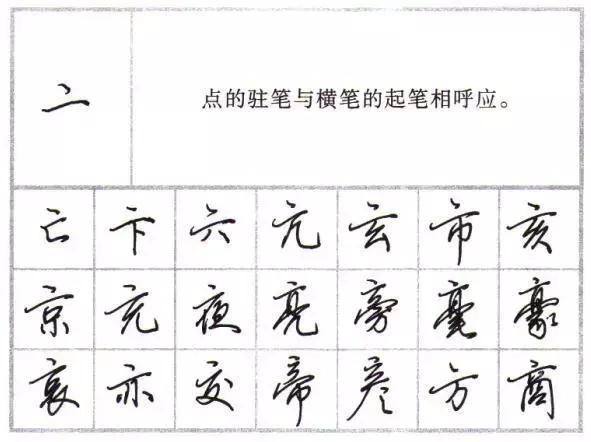 亠
点的驻笔与横笔的起笔相呼应。
亡卞六亢玄市亥
京充夜亮旁毫豪
哀亦交帝彦方商